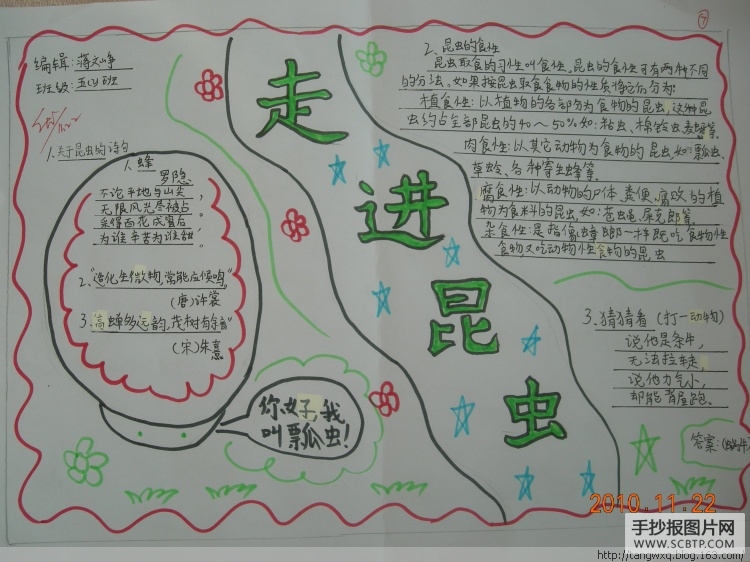 编辑:蒋文峥
班级:五(4)班
1.关于昆虫的诗句
1、蜂
罗隐
不论平地与山尖,
无限风光尽被占。
采得百花成蜜后,
为谁辛苦为谁甜。
2."造化生微物,常能应候鸣。"
(唐)许裳
3.高蝉多远韵,茂树有余音"
(宋)朱熹
你好,我
叫瓢虫!
走进昆虫
2、昆虫的食性
昆虫取食的习性叫食性。昆虫的食性可有两种不同
的分法。如果按昆虫取食食物的性质得它们分为:
植食性:以植物的各部分为食物的昆虫,这种昆
虫约占全部昆虫的40~50%如:粘虫、棉铃虫、等。
肉食性:以其它动物为食物的昆虫,如:瓢虫、
草蛉、各种寄生蜂等。
腐食性:以动物的尸体、粪便、腐败的植
物为食料的昆虫,如:苍蝇、屎壳郎等。
杂食性:是指像蟑螂一样既吃食物性
食物又吃动物性食物的昆虫
3、猜猜看(打一动物)
说他是条牛,
无法拉车走,
说他力气小,
却能背屋跑。
答案:(蜗牛)
7
2010.11.22
手抄报图片网
WWW.SCBTP.COM
http://tangwxq.blog.163.com/